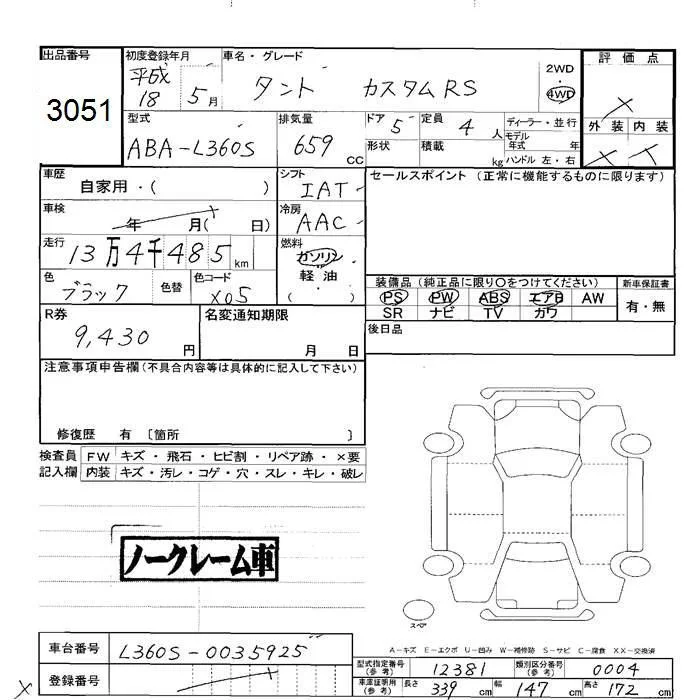 出品番号
3051
初度登録年月
平成
18 5月
車名・グレード
タント カスタムRS
2WD
・
4WD
評価点
×
外装 内装
× ×
型式
ABA-L360S
排気量
659 CC
ドア 5
形状
定員 4 人
積載 kg
ディーラー・並行
モデル
年式 年
ハンドル 左・右
車歴
自家用・( )
シフト
IAT
セールスポイント (正常に機能するものに限ります)
車検
年 月( 日)
冷房
AAC
走行
13万4千485km
燃料
ガソリン
軽油
( ・ )
色
ブラック
色替
色コード
X05
装備品 (純正品に限り○をつけてください)
PS PW ABS エアB AW
SR ナビ TV カワ
新車保証書
有・無
後日品
R券
9,430 円
名変通知期限
月 日
注意事項申告欄(不具合内容等は具体的に記入して下さい)
修復歴 有 〔箇所 〕
検査員
記入欄
FW キズ・飛石・ヒビ割・リペア跡・×要
内装 キズ・汚レ・コゲ・穴・スレ・キレ・破レ
ノークレーム車
スペア
A-キズ E-エクボ U-凹み W-補修跡 S-サビ C-腐食 XX-交換済
車台番号 L360S-0035925
登録番号
×
型式指定番号
(参考)
12381
類別区分番号
(参考)
0004
車庫証明用
(参考)
長さ 339 cm 幅 147 cm 高さ 172 cm